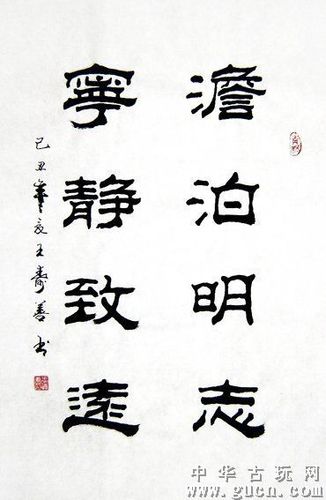 澹泊明志
寧静致遠
己丑夏王壽善书
中华古玩网
www.gucn.com